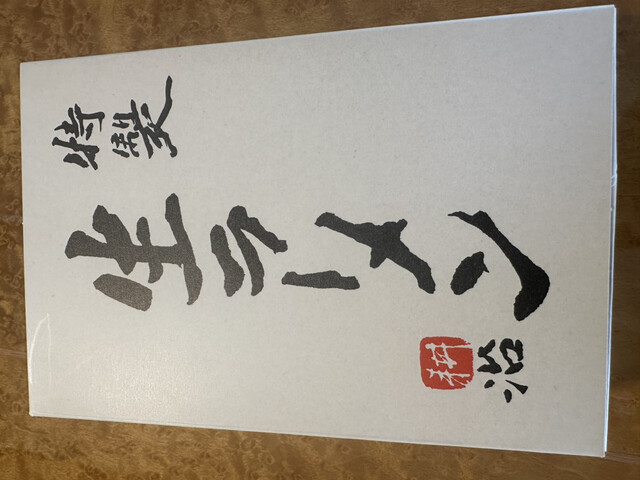 特製
生ラーメン
耕治